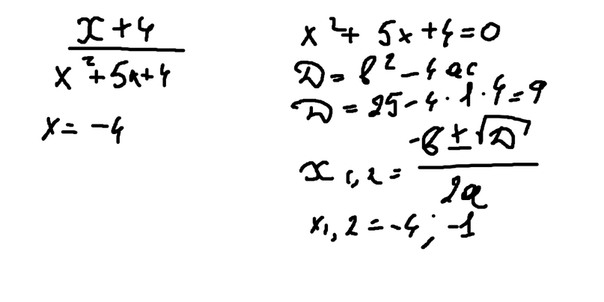 x + 4
x² + 5x + 4
x = -4
x² + 5x + 4 = 0
D = b² - 4ac
D = 25 - 4 · 1 · 4 = 9
x₁,₂ = (-b ± √D) / 2a
x₁,₂ = -4; -1